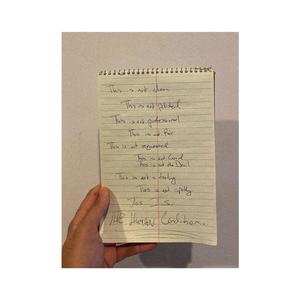 This is not clean
This is not polished
This is not professional
This is not fair
This is not organised
This is not Good
This is not the Devil
This is not a
This is not
This Is
THE HUMAN Condition..